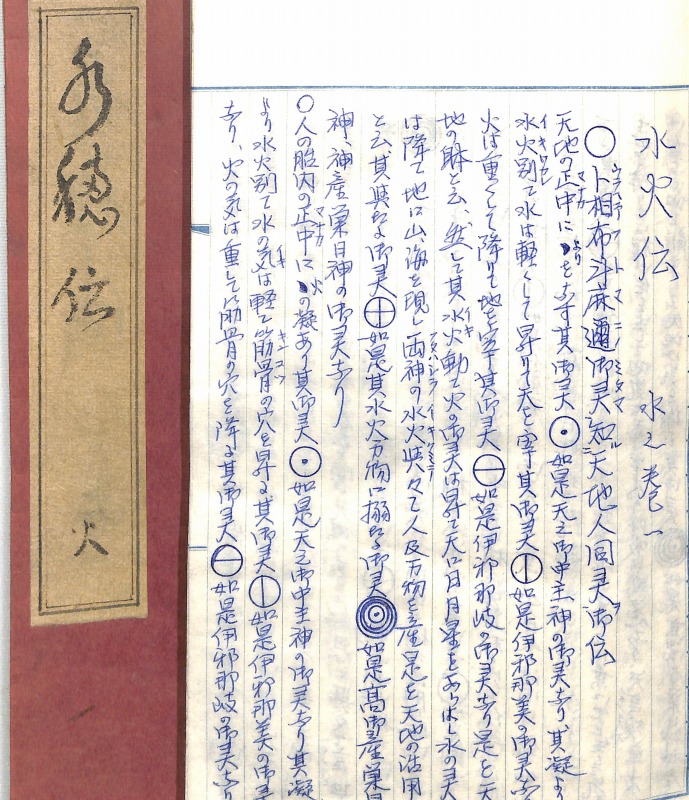 水穂伝
火
水火伝　水之巻一
〇卜相布斗麻邇御灵知天地人同灵御伝
天地の正中に、を寄す其御灵⊙如是天之御中主神の御灵なり、其凝より
水火別て水は軽くして昇りて天を宰其御灵⦶如是伊邪那美の御灵なり
火は重くして降りて地を宰す其御灵⊖如是伊邪那岐の御灵なり是を天
地の躰と云、然して其水火動て火の御灵は昇て天に日月星をあらはし水の灵
は降て地に山海を現し両神の水火與々て人及万物を産是を天地の活用
と云、其與なる御灵⊕如是其水火万物に搦なる御灵◎如是高御産巣日
神、神産巣日神の御灵なり
〇人の胎内の正中に、の凝あり其御灵⊙如是天之御中主神の御灵なり其凝
より水火別て水の気は軽く筋骨の穴を昇る其御灵⦶如是伊邪那美の御灵
なり、火の気は重して筋骨の穴を降る其御灵⊖如是伊邪那岐の御灵なり